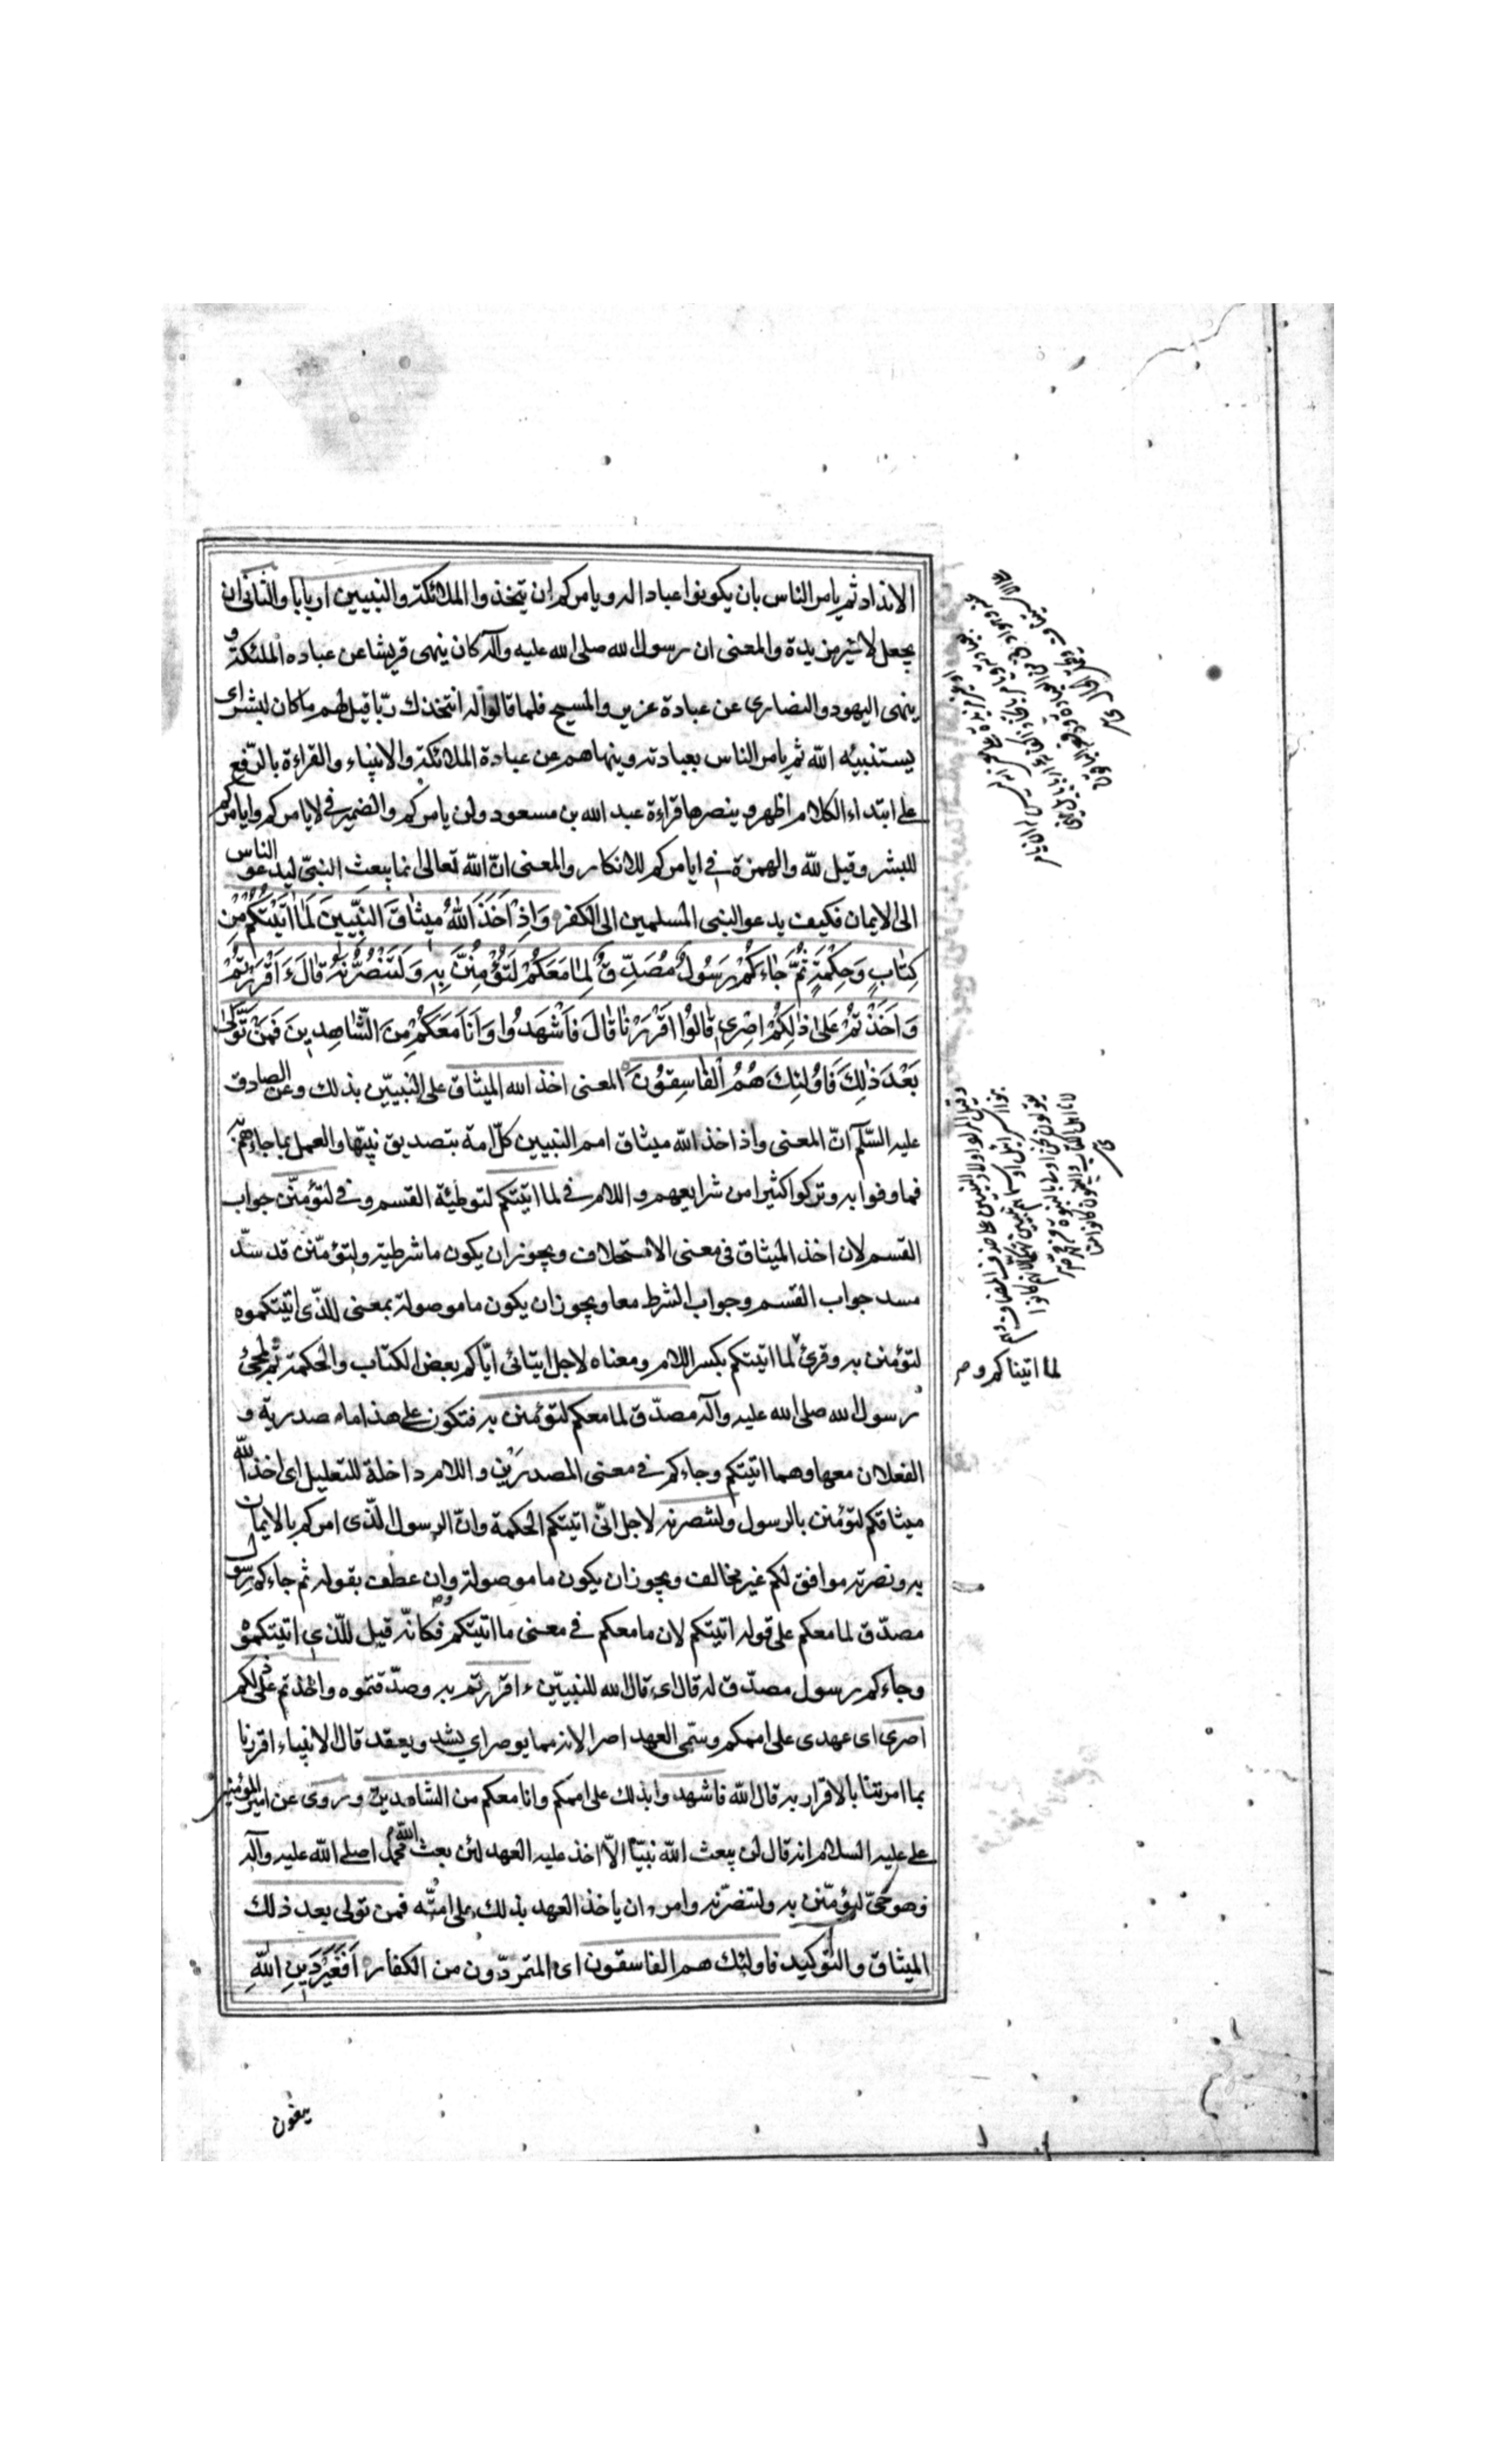 الانداد ثم يامر الناس بان يكونوا عبادا له ويامركم ان يتخذوا الملائكة والنبيين اربابا والثانى ان
يجعل لا غير مزيدة والمعنى ان رسول الله صلى الله عليه وآله كان ينهى قريشا عن عباده الملئكة و
ينهى اليهود والنصارى عن عبادة عزير والمسيح فلما قالوا له انتخذك ربّا قيل لهم ما كان لبشر اى
يستنبيه الله ثم يامر الناس بعبادته وينهاهم عن عبادة الملائكة والانبياء والقراءة بالرّفع
على ابتداء الكلام اظهر وينصرها قراءة عبد الله بن مسعود ولن يامركم والضمير فى لا يامركم وايامركم
للبشر وقيل لله والهمزة فى ايامركم للانكار والمعنى انّ الله تعالى انما يبعث النبىّ ليدعو الناس
الى الايمان فكيف يدعو النبى المسلمين الى الكفر وَاِذْ اَخَذَ اللهُ مِيثٰاقَ النَّبِيّينَ لَمٰا اٰتَيْتُكُمْ مِنْ
كِتٰابٍ وَحِكْمَةٍ ثُمَّ جٰاءَكُمْ رَسُولٌ مُصَدِّقٌ لِمٰا مَعَكُمْ لَتُؤْمِنُنَّ بِهِ وَلَتَنْصُرُنَّهُ قٰالَ ءَاَقْرَرْتُمْ
وَاَخَذْتُمْ عَلىٰ ذٰلِكُمْ اِصْرِى قٰالُوا اَقْرَرْنٰا قٰالَ فَاشْهَدُوا وَاَنَا مَعَكُمْ مِنَ الشّٰاهِدِينَ فَمَنْ تَوَلّىٰ
بَعْدَ ذٰلِكَ فَاُولٰئِكَ هُمُ الْفٰاسِقُونَ المعنى اخذ الله الميثاق على النبيّين بذلك وعن الصادق
عليه السّلم انّ المعنى واذ اخذ الله ميثاق امم النبيين كلّ امة بتصديق نبيّها والعمل بما جاءهم به
فما وفوا به وتركوا كثيرا من شرايعهم واللام فى لما اتيتكم لتوطئة القسم وفى لتؤمنّن جواب
القسم لان اخذ الميثاق فى معنى الاستحلاف ويجوز ان يكون ما شرطية ولتؤمنّن قد سدّ
مسد جواب القسم وجواب الشرط معا ويجوز ان يكون ما موصولة بمعنى للذّى اتيتكموه
لتؤمنن به وقرئ لما اتيتكم بكسر اللام ومعناه لاجل ايتائى ايّاكم بعض الكتاب والحكمة ثم لمجئ
رسول الله صلى الله عليه وآله مصدّق لما معكم لتؤمنن به فتكون على هذا ما مصدريّة و
الفعلان معها وهما اتيتكم وجاءكم فى معنى المصدرين واللام داخلة للتعليل اى اخذ الله
ميثاقكم لتؤمنن بالرسول ولتنصرنه لاجل انّى اتيتكم الحكمة وانّ الرسول الّذى امركم بالايمان
به ونصرته موافق لكم غير مخالف ويجوز ان يكون ما موصولة وان عطف بقوله ثم جاءكم رسول
مصدّق لما معكم على قوله اتيتكم لان ما معكم فى معنى ما اتيتكم فكانّه قيل للّذى اتيتكموه
وجاءكم رسول مصدّق له قال اى قال الله للنبيّين ءاقررتم به وصدّقتموه واخذتم على ذلكم
اصرى اى عهدى على اممكم وسمّى العهد اصرا لانه مما يوصر اي يشد ويعقد قال الانبياء اقررنا
بما امرتنا بالاقرار به قال الله فاشهدوا بذلك على اممكم وانا معكم من الشاهدين وروى عن امير المؤمنين
على عليه السلام انه قال لن يبعث الله نبيّا الاّ اخذ عليه العهد لئن بعث الله محمدا صلى الله عليه وآله
وهو حىّ ليؤمنّن به ولتنصرنّه وامره ان ياخذ العهد بذلك على امّته فمن تولى بعد ذلك
الميثاق والتوكيد فاولئك هم الفاسقون اى المتمردّون من الكفار اَفَغَيْرَ دِينِ اللهِ
لما اتيناكم
يبغون